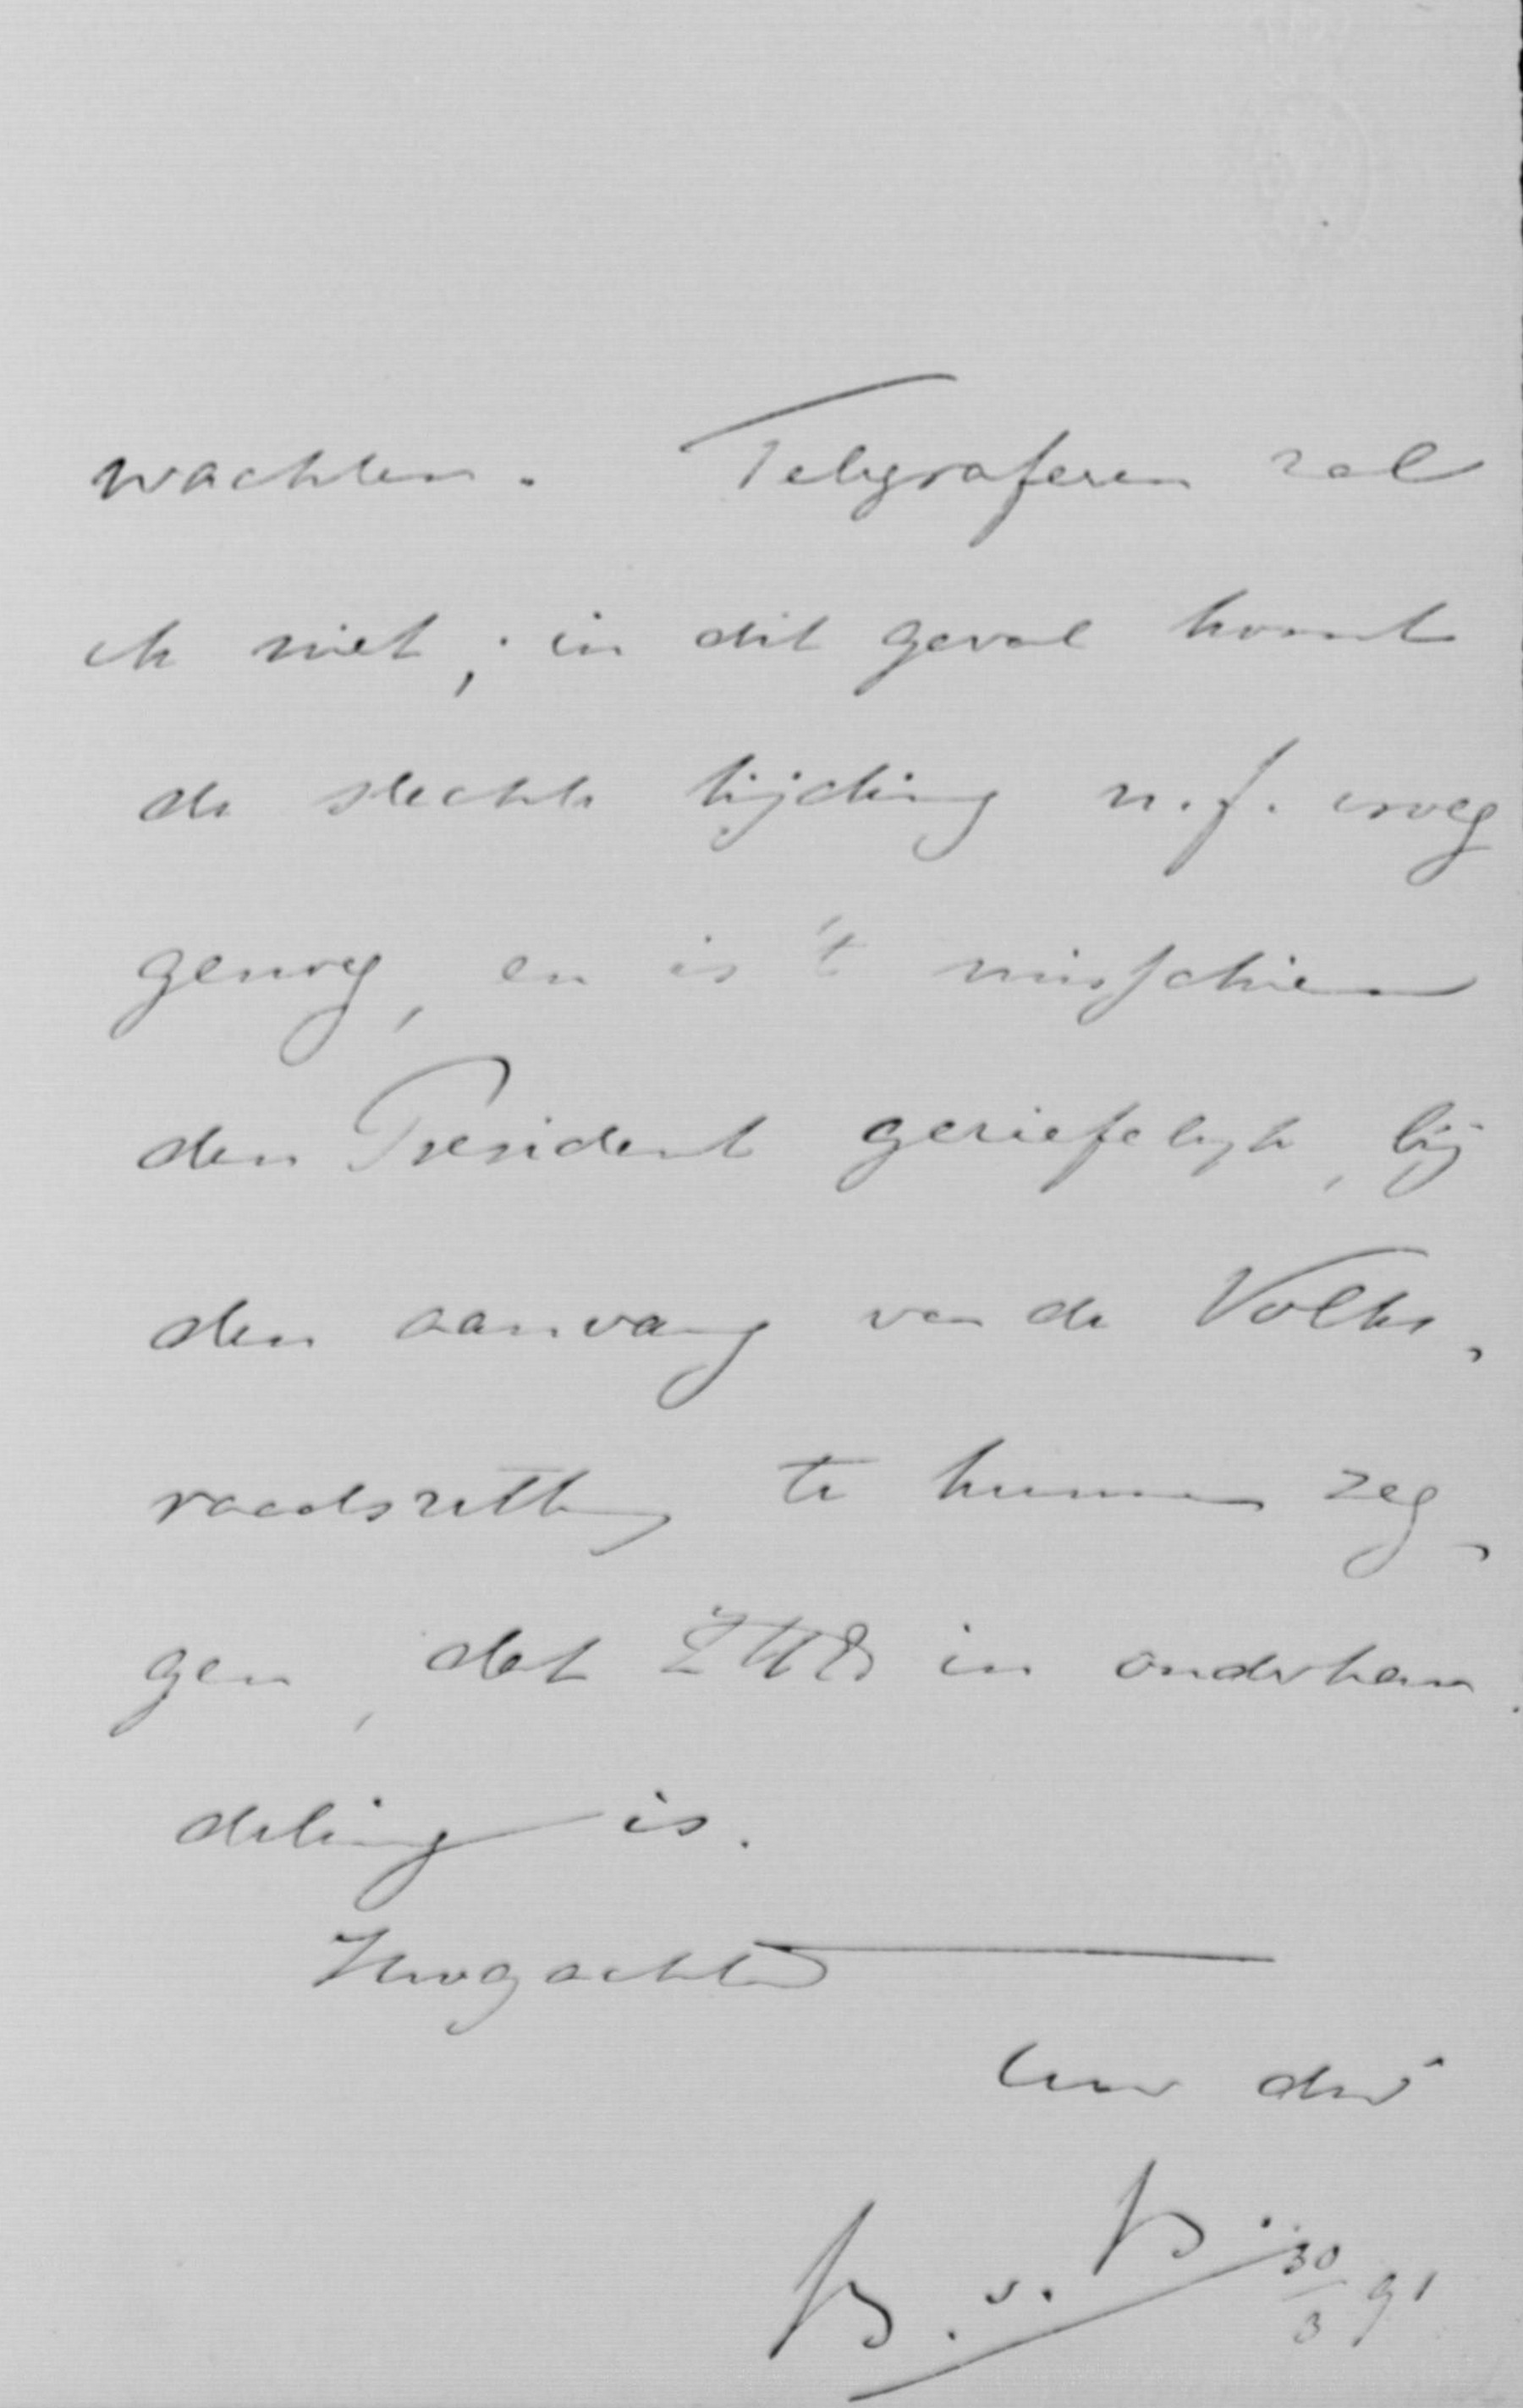 wachten. Telegraferen zal
ik niet; in dit geval komt
de slechte tijding n.f. vroeg
genoeg, en is 't misschien
den President geriefelijk, bij
den aanvang van de Volks-
raadszitting te kunnen zeg-
gen, dat ZHE in onderhan-
deling is.
Hoogachtend
Uw dw
B. v. B. 30/3 91